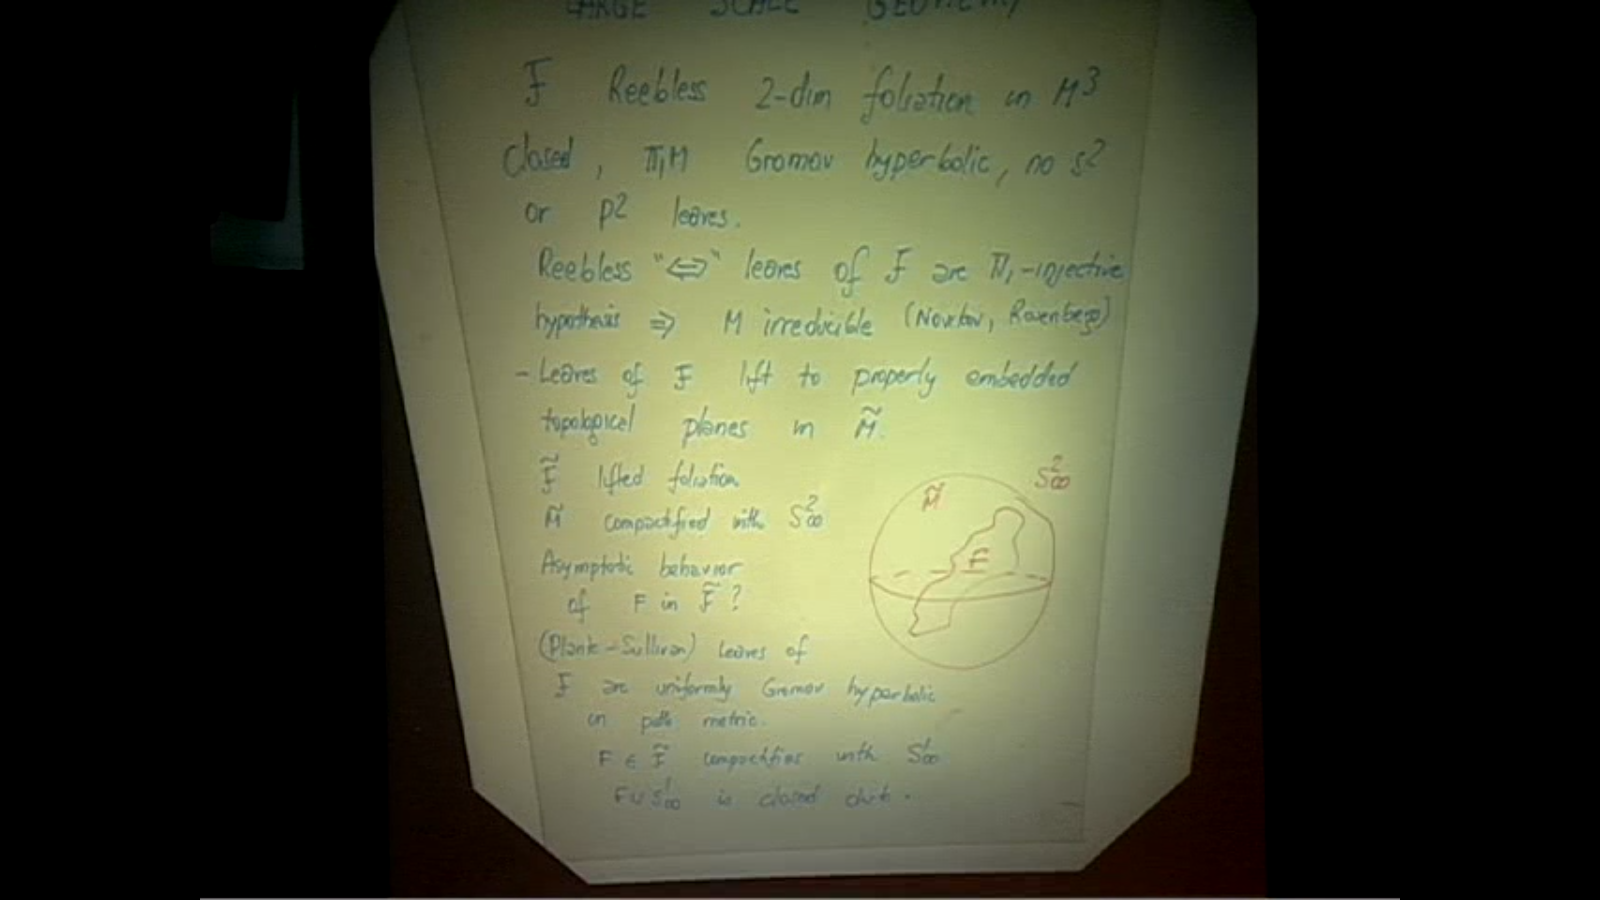 LARGE SCALE GEOMETRY
F Reebless 2-dim foliation in M³
closed, π₁M Gromov hyperbolic, no S²
or P² leaves.
Reebless "⇔" leaves of F are π₁-injective
hypothesis ⇒ M irreducible (Novikov, Rosenberg)
- Leaves of F lift to properly embedded
topological planes in M̃.
F̃ lifted foliation
M̃ compactified with S²∞
M̃ S²∞
F
Asymptotic behavior
of F in F̃ ?
(Plante-Sullivan) leaves of
F are uniformly Gromov hyperbolic
in path metric.
F ∈ F̃ compactifies with S¹∞
F∪S¹∞ is closed disk.